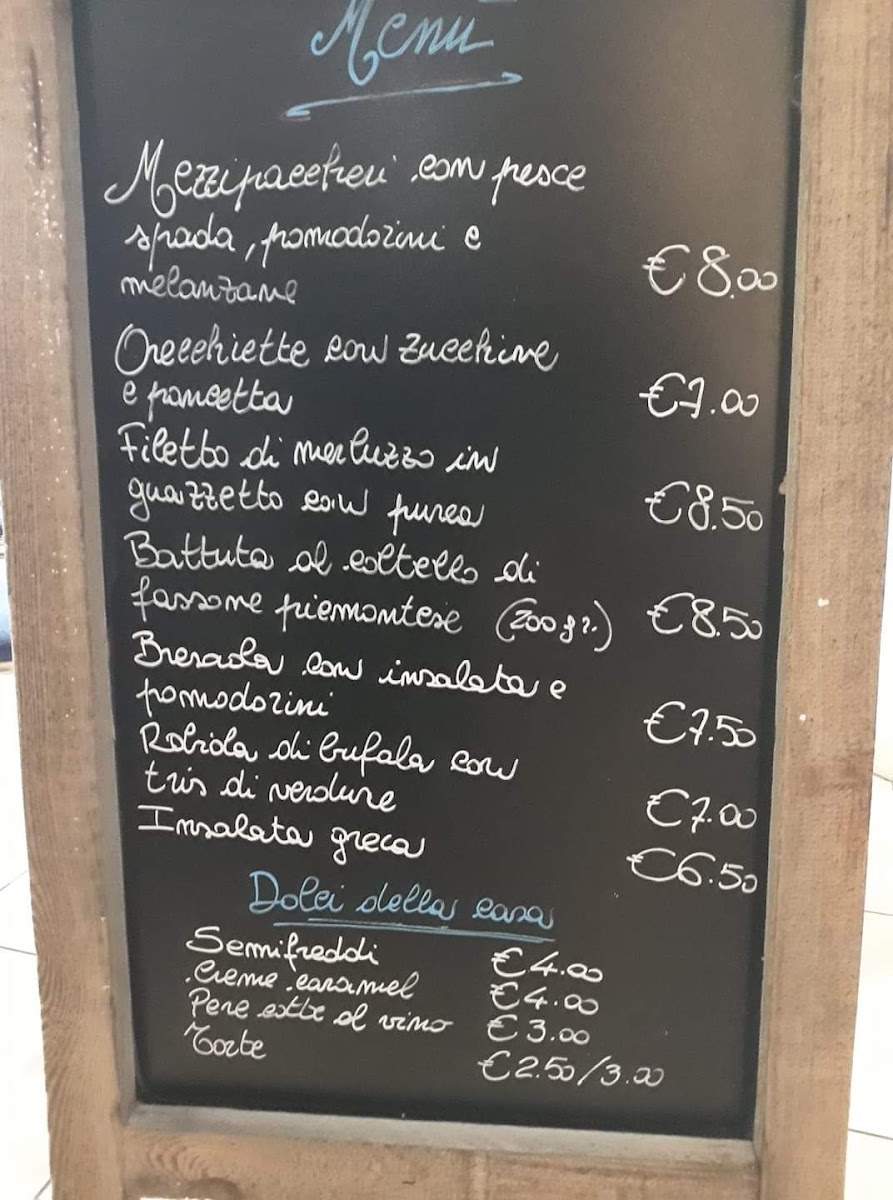 Menù
Mezzipaccheri con pesce
spada, pomodorini e
melanzane €8.00
Orecchiette con zucchine
e pancetta €7.00
Filetto di merluzzo in
guazzetto con purea €8.50
Battuta al coltello di
fassone piemontese (200 gr.) €8.50
Bresaola con insalata e
pomodorini €7.50
Robiola di bufala con
tris di verdure €7.00
Insalata greca €6.50
Dolci della casa
Semifreddi €4.00
Creme caramel €4.00
Pere cotte al vino €3.00
Torte €2.50/3.00